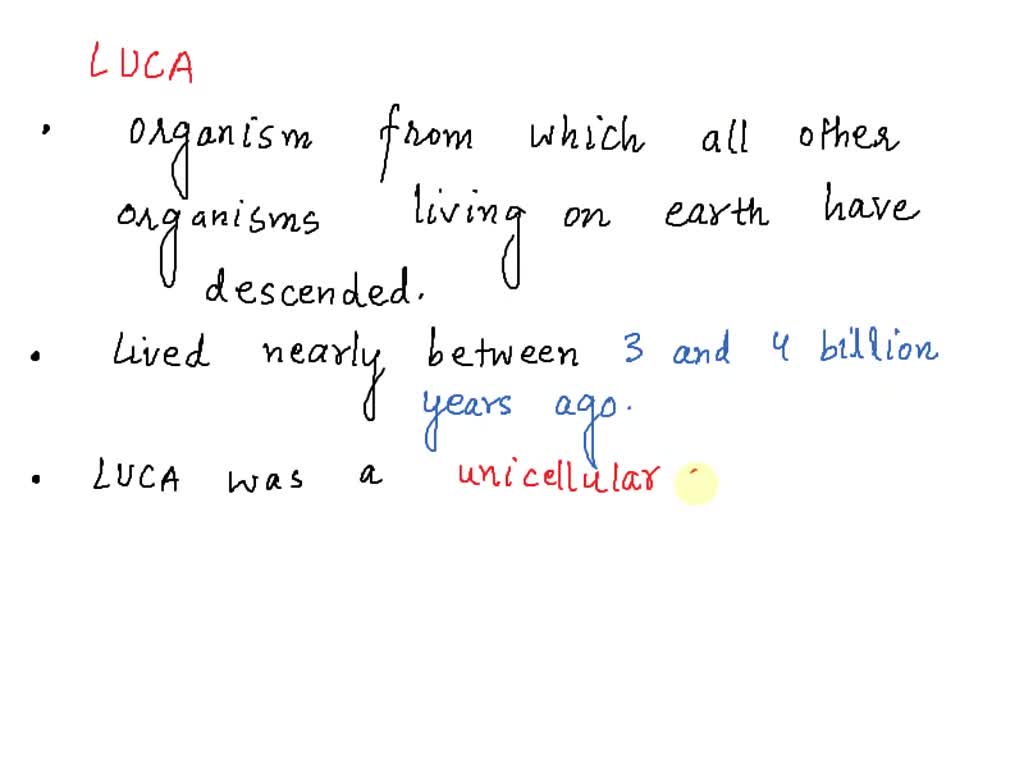 LUCA
• organism from which all other
organisms living on earth have
descended.
• Lived nearly between 3 and 4 billion
years ago.
• LUCA was a unicellular